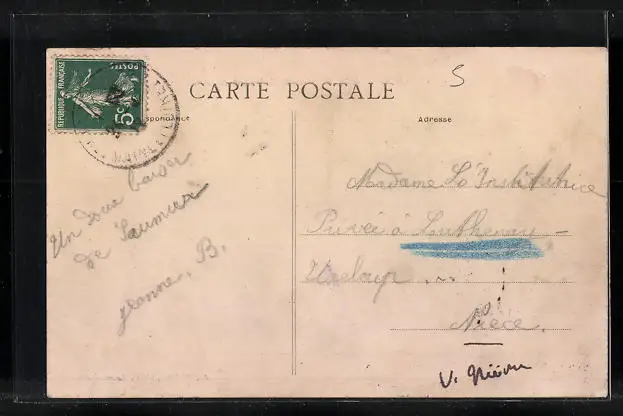 REPUBLIQUE FRANÇAISE
POSTES
5c
5
CARTE POSTALE
spondance
Adresse
Un doux baiser
de Saumur
Jeanne. B.
Madame L'Institutrice
Privée à Luthenay-
Uxeloup
Nièce.
V. Nièvre